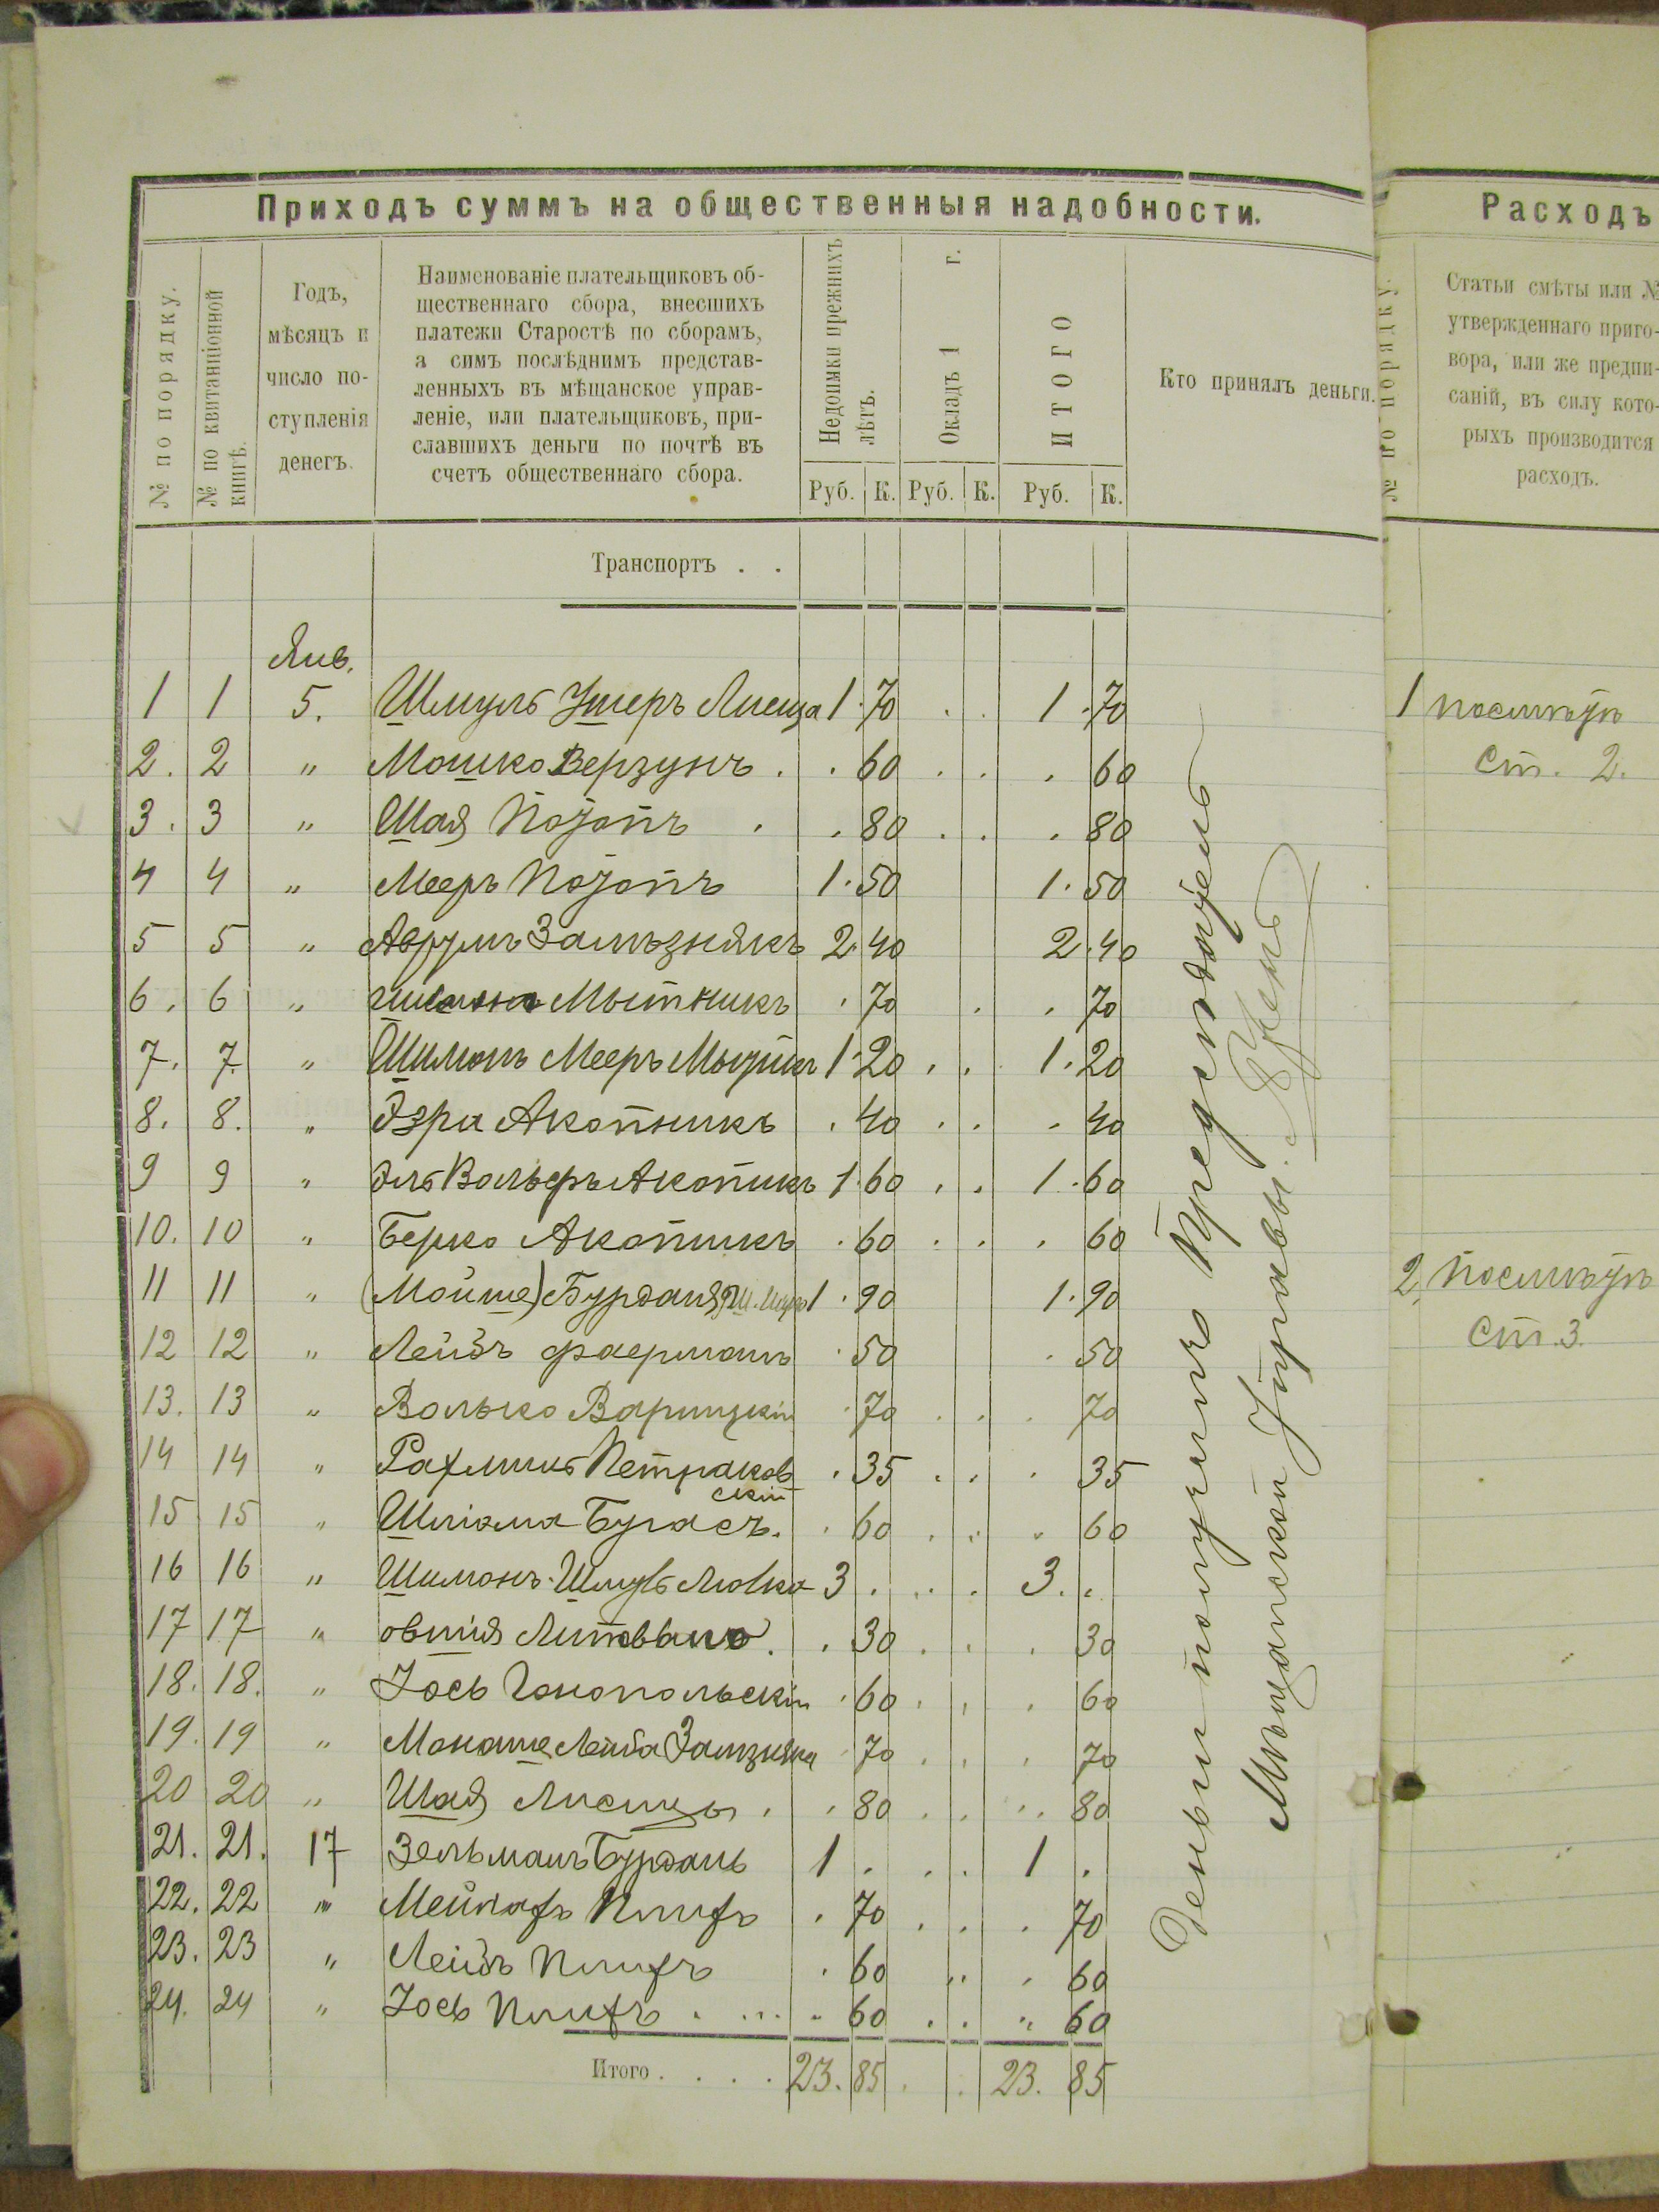 Приходъ суммъ на общественныя надобности.
№ по порядку.
№ по квитанціонной книгѣ.
Годъ,
мѣсяцъ и
число по-
ступленія
денегъ.
Наименованіе плательщиковъ об-
щественнаго сбора, внесшихъ
платежи Старостѣ по сборамъ,
а симъ послѣднимъ представ-
ленныхъ въ мѣщанское управ-
леніе, или плательщиковъ, при-
славшихъ деньги по почтѣ въ
счетъ общественнаго сбора.
Недоимки прежнихъ
лѣтъ.
Окладъ 1 г.
ИТОГО
Руб. К. Руб. К. Руб. К.
Кто принялъ деньги.
Транспортъ . .
Янв.
1 1 5. Шмуль Ушеръ Лисица 1.70 . . 1.70
2. 2 " Мошко Верзунъ . . 60 . . . 60
3. 3 " Шая . . 80 . . . 80
4 4 " Мееръ 1.50 1.50
5 5 " Аврумъ Залѣзнякъ 2.40 2.40
6. 6 " Мытникъ . 70 . . 70
7. 7. " Шимонъ Мееръ 1.20 . . 1.20
8. 8. " Эзри Акопникъ . 40 . . . 40
9 9 " Эль Вольфъ Акопникъ 1.60 . . 1.60
10. 10 " Берко Акопникъ . 60 . . . 60
11 11 " (Мойше) Бурданъ 1.90 1.90
12 12 " Лейзъ Фаерманъ . 50 . 50
13. 13 " Волько . 70 . . . 70
14 14 " Рахмиль Петраков
скій . 35 . . . 35
15 15 " Шліома Бугаеъ. . 60 . . . 60
16 16 " Шимонъ-Шмуль 3 . . . 3. .
17 17 " овшія . . 30 . . . 30
18. 18. " Іось Гонопольскій . 60 . . . 60
19. 19 " Манаше Лейба . 70 . . . 70
20 20 " Шая Лисицы . . 80 . . . 80
21. 21. 17 Зельманъ Бурданъ 1 . . . 1 .
22. 22 " Мейлахъ Плихъ . 70 . . . 70
23. 23 " Лейзъ Плихъ . 60 . . . 60
24. 24 " Іось Плихъ . . 60 . . . 60
Итого . . . . 23. 85 . . 23. 85
Деньги получилъ Предсѣдатель
Мѣщанской Управы.
Расходъ
№ по порядку.
Статьи смѣты или №
утвержденнаго приго-
вора, или же предпи-
саній, въ силу кото-
рыхъ производится
расходъ.
1
ст. 2.
2
ст. 3.